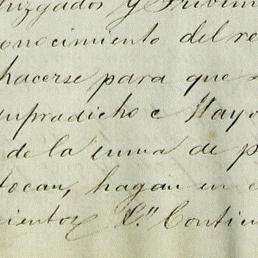 Juzgados y Tribun
onocimiento del re
hacerse para que
supradicho e Mayo
de la suma de p
tocan, hagan en
cientos